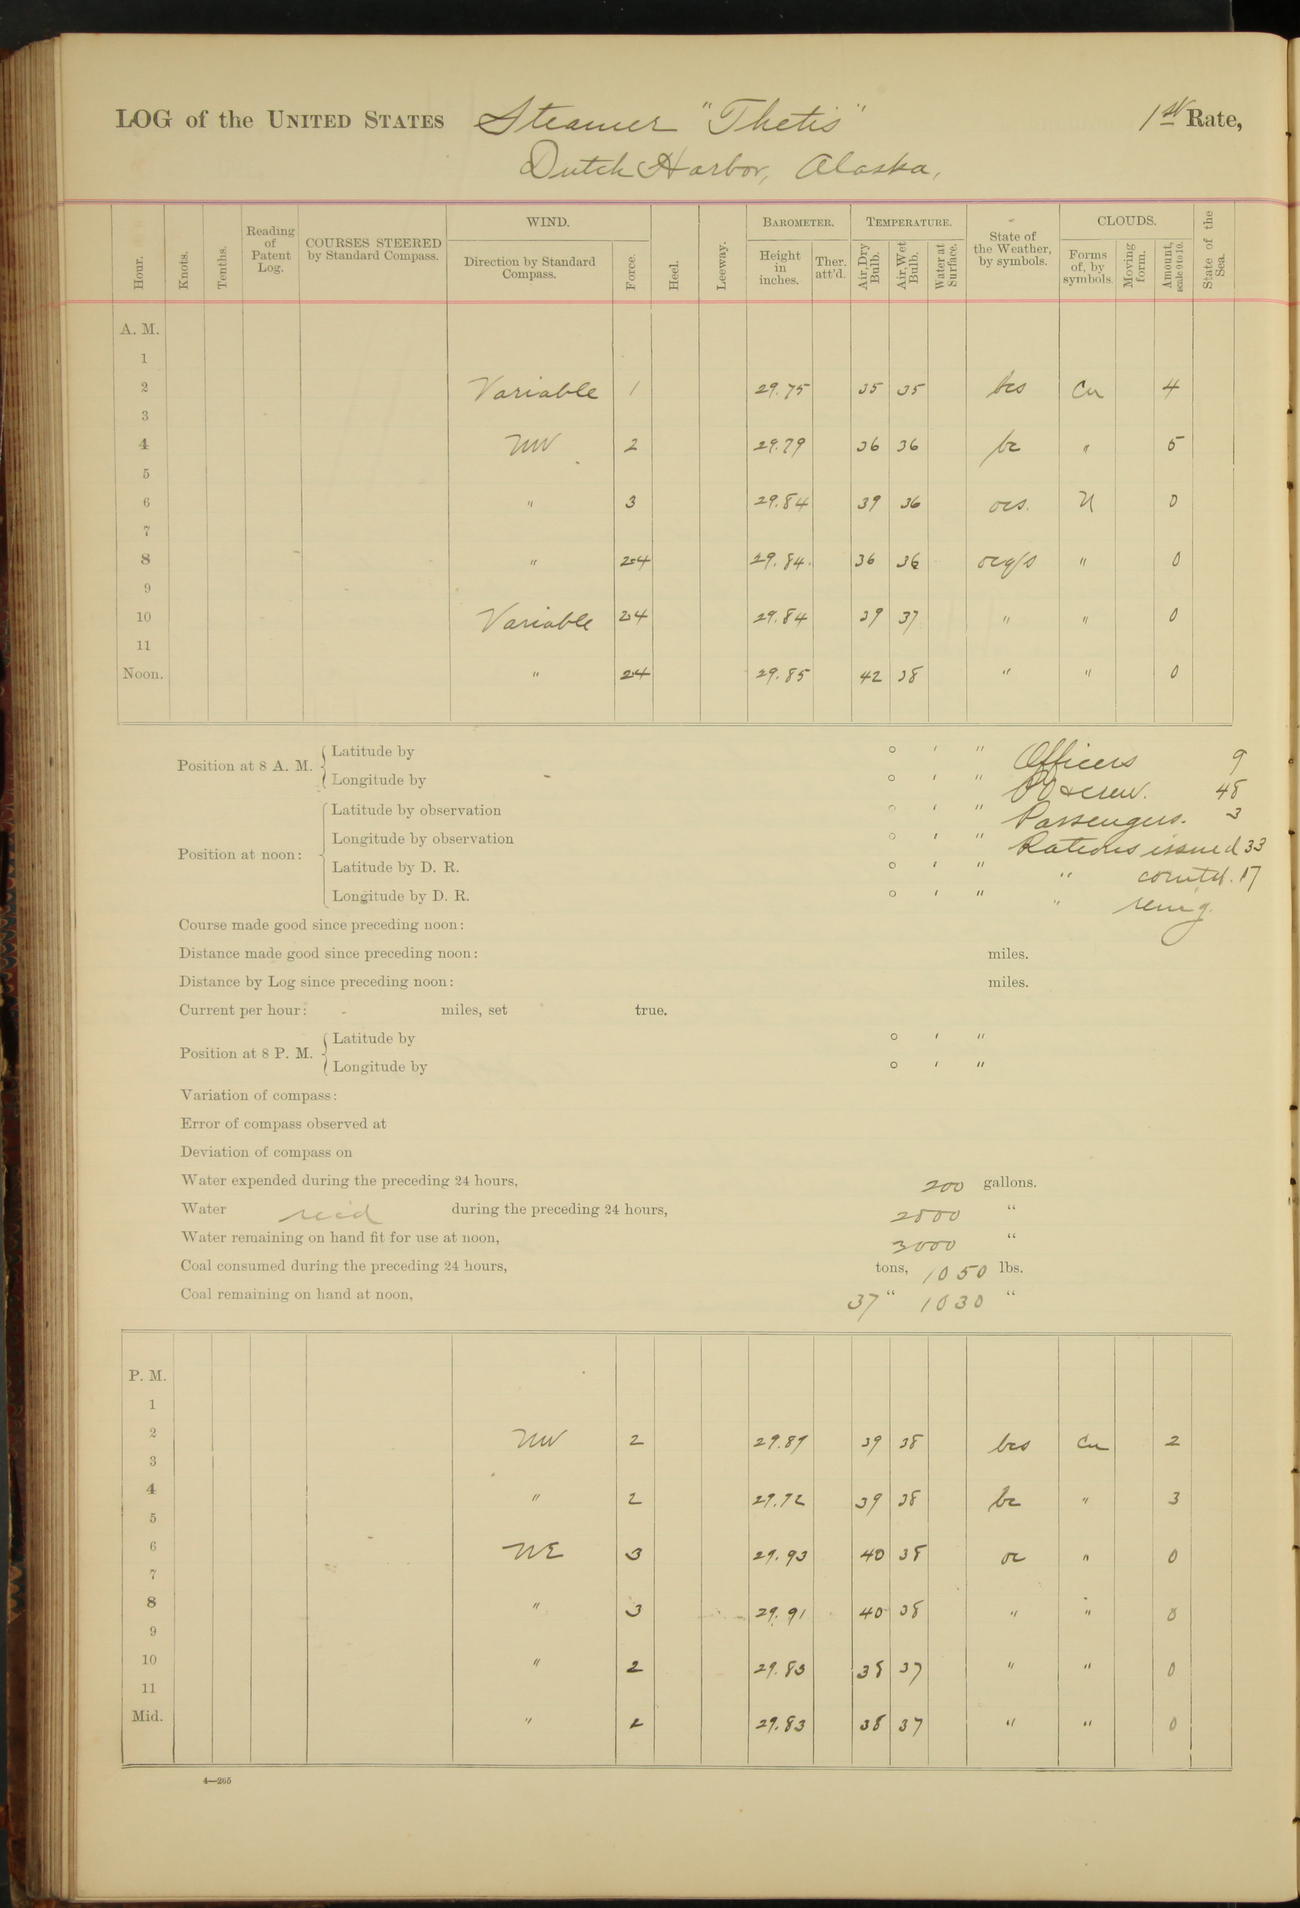 LOG of the UNITED STATES Steamer "Thetis" 1st Rate,
Dutch Harbor, Alaska,
Hour. Knots. Tenths. Reading of Patent Log. COURSES STEERED by Standard Compass. WIND. Direction by Standard Compass. Force. Heel. Leeway. BAROMETER. Height in inches. Ther. att'd. TEMPERATURE. Air, Dry Bulb. Air, Wet Bulb. Water at Surface. State of the Weather, by symbols. CLOUDS. Forms of, by symbols. Moving form. Amount, scale 0 to 10. State of the Sea.
A. M.
1
2 Variable 1 29.75 35 35 bcs Cu 4
3
4 NW 2 29.79 36 36 bc " 5
5
6 " 3 29.84 39 36 ocs. N 0
7
8 " 2-4 29.84 36 36 ocqs " 0
9
10 Variable 2-4 29.84 39 37 " " 0
11
Noon. " 2-4 29.85 42 38 " " 0
Position at 8 A. M. Latitude by ° ' " Officers 9
Longitude by ° ' " PO & crew. 48
Position at noon: Latitude by observation ° ' " Passengers. 3
Longitude by observation ° ' " Rations issued 33
Latitude by D. R. ° ' " " comtd. 17
Longitude by D. R. ° ' " "
Course made good since preceding noon:
Distance made good since preceding noon: miles.
Distance by Log since preceding noon: miles.
Current per hour: miles, set true.
Position at 8 P. M. Latitude by ° ' "
Longitude by ° ' "
Variation of compass:
Error of compass observed at
Deviation of compass on
Water expended during the preceding 24 hours, 200 gallons.
Water rec'd during the preceding 24 hours, 2800 "
Water remaining on hand fit for use at noon, 3000 "
Coal consumed during the preceding 24 hours, tons, 1050 lbs.
Coal remaining on hand at noon, 37 " 1030 "
P. M.
1
2 NW 2 29.89 39 38 bcs Cu 2
3
4 " 2 29.92 39 38 bc " 3
5
6 NE 3 29.93 40 38 oc " 0
7
8 " 3 29.91 40 38 " " 0
9
10 " 2 29.83 38 37 " " 0
11
Mid. " 2 29.83 38 37 " " 0
4—265